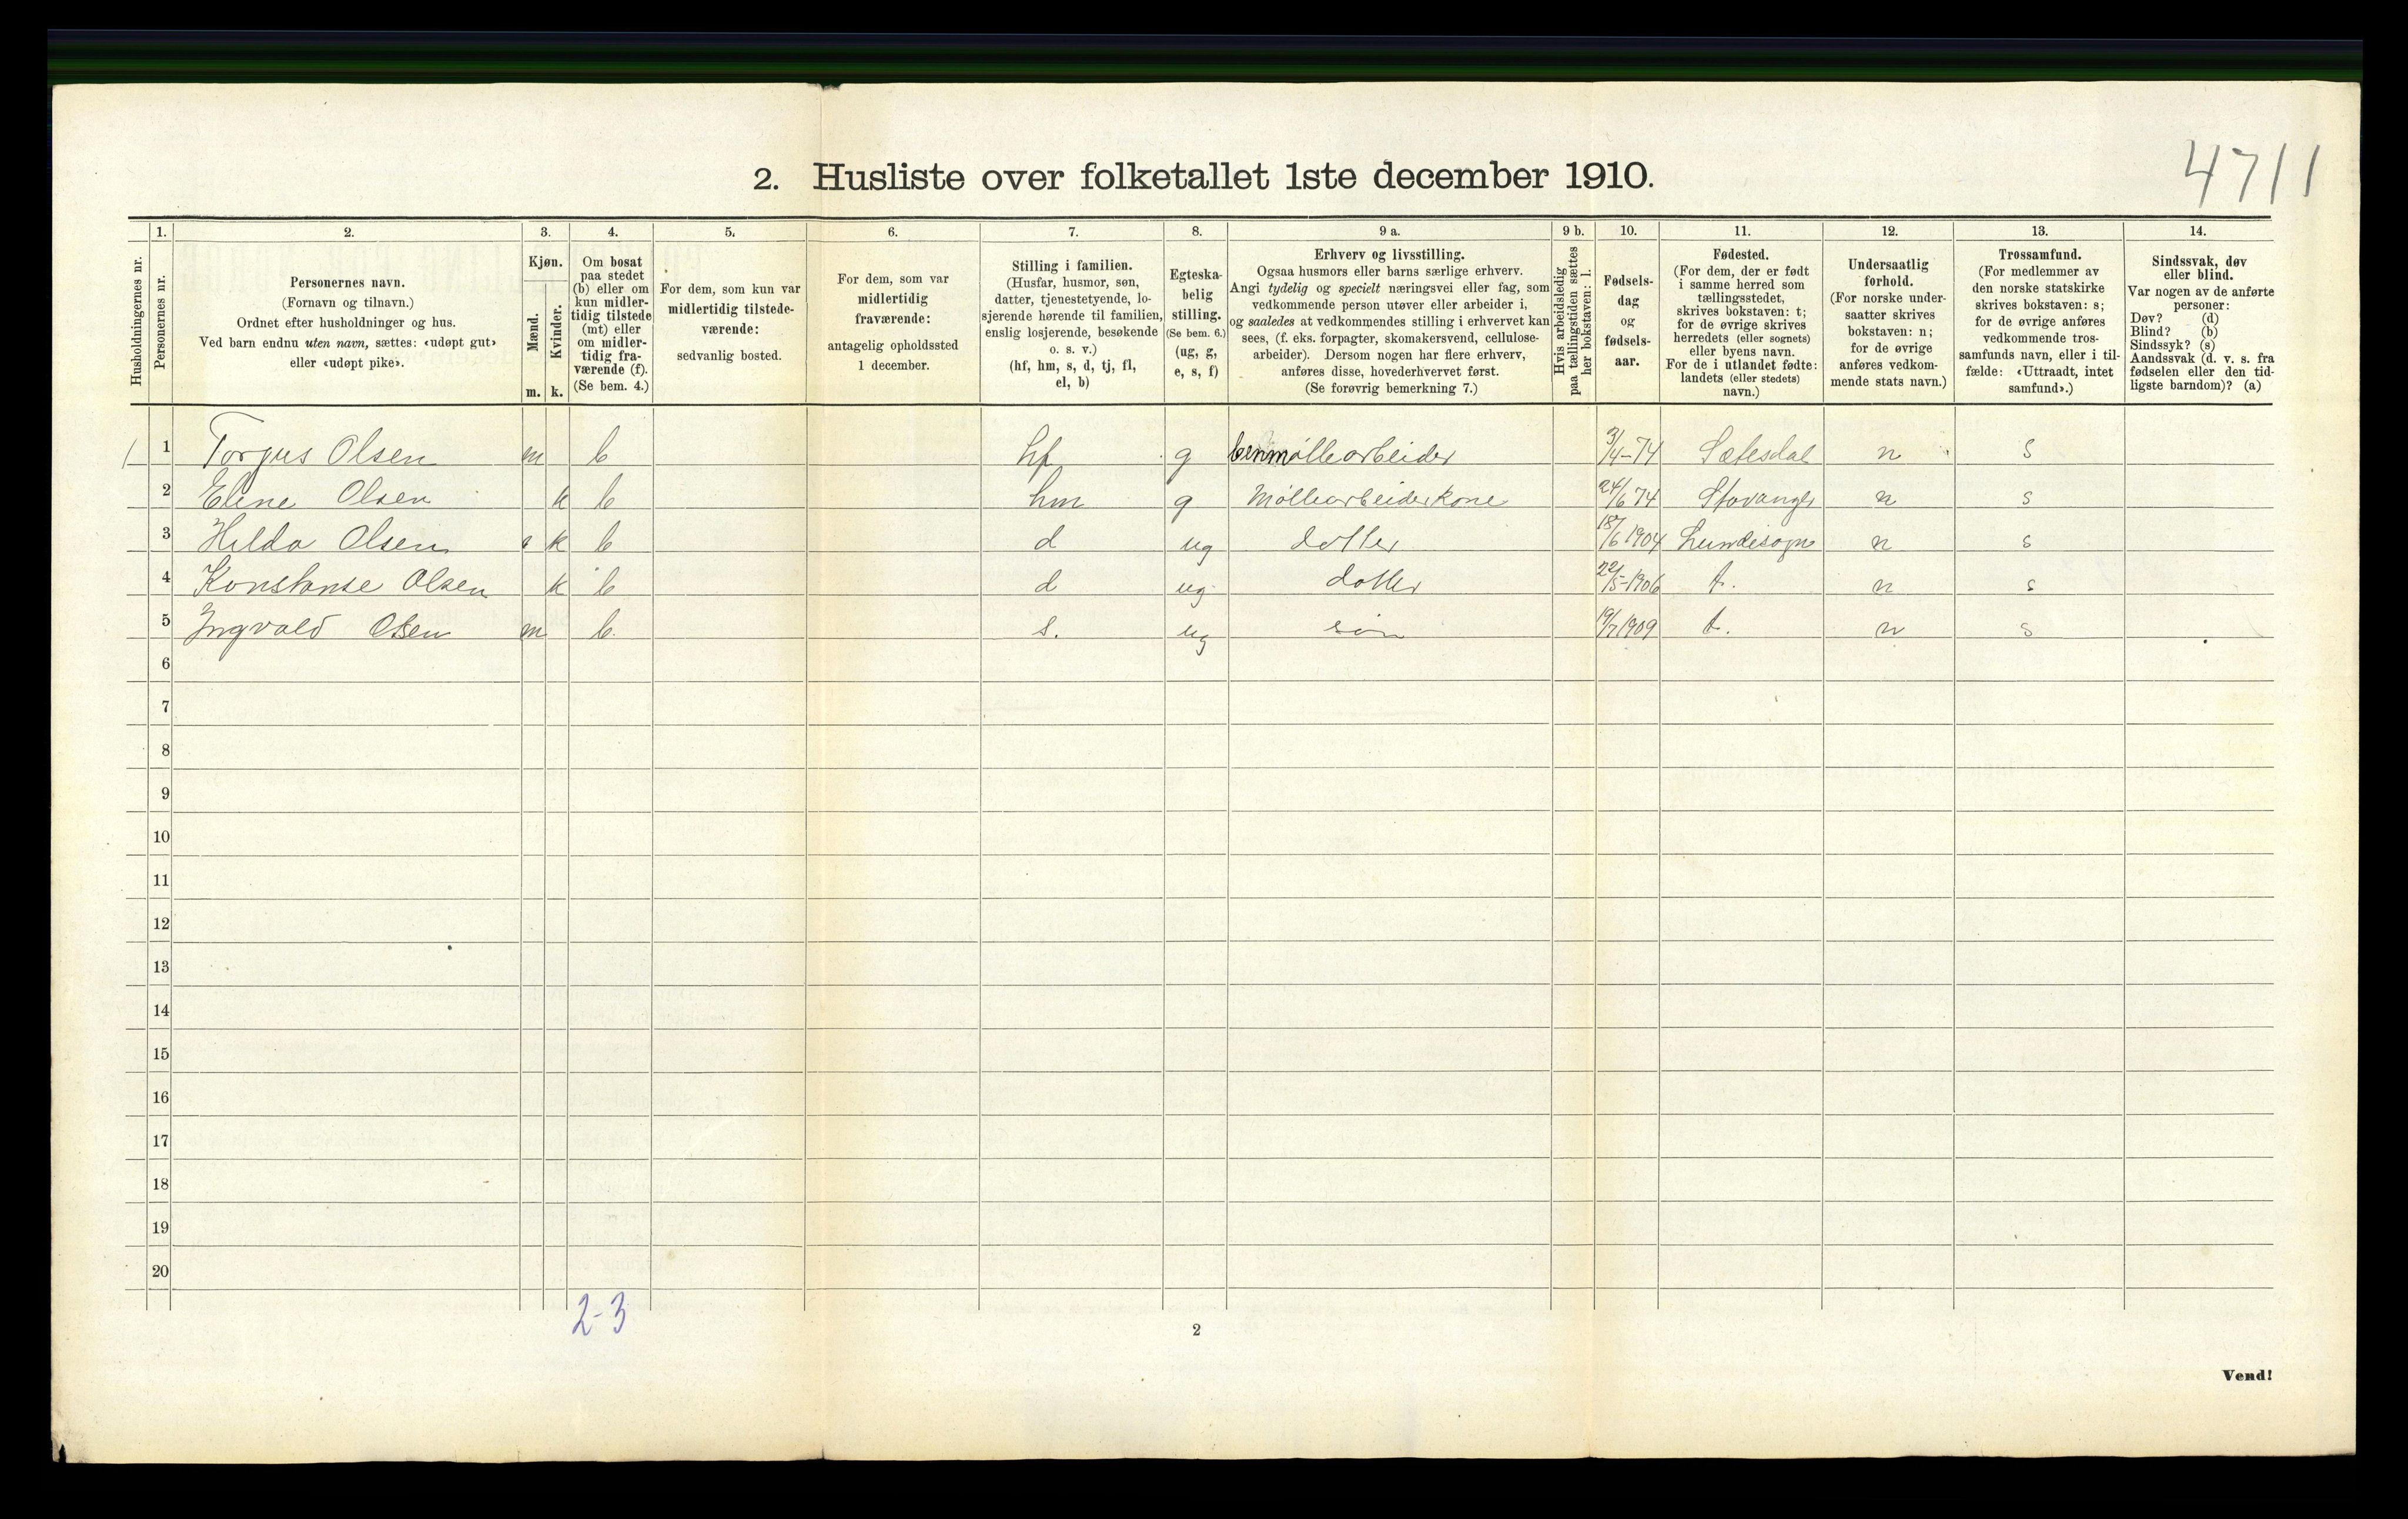 4711
2. Husliste over folketallet 1ste december 1910.
Husholdningernes nr.
1.
Personernes nr.
2.
Personernes navn.
(Fornavn og tilnavn.)
Ordnet efter husholdninger og hus.
Ved barn endnu uten navn, sættes: «udøpt gut»
eller «udøpt pike».
3.
Kjøn.
Mænd.
m.
Kvinder.
k.
4.
Om bosat
paa stedet
(b) eller om
kun midler-
tidig tilstede
(mt) eller
om midler-
tidig fra-
værende (f).
(Se bem. 4.)
5.
For dem, som kun var
midlertidig tilstede-
værende:
sedvanlig bosted.
6.
For dem, som var
midlertidig
fraværende:
antagelig opholdssted
1 december.
7.
Stilling i familien.
(Husfar, husmor, søn,
datter, tjenestetyende, lo-
sjerende hørende til familien,
enslig losjerende, besøkende
o. s. v.)
(hf, hm, s, d, tj, fl,
el, b)
8.
Egteska-
belig
stilling.
(Se bem. 6.)
(ug, g,
e, s, f)
9 a.
Erhverv og livsstilling.
Ogsaa husmors eller barns særlige erhverv.
Angi tydelig og specielt næringsvei eller fag, som
vedkommende person utøver eller arbeider i,
og saaledes at vedkommendes stilling i erhvervet kan
sees, (f. eks. forpagter, skomakersvend, cellulose-
arbeider). Dersom nogen har flere erhverv,
anføres disse, hovederhvervet først.
(Se forøvrig bemerkning 7.)
9 b.
Hvis arbeidsledig
paa tællingstiden sættes
her bokstaven: l.
10.
Fødsels-
dag
og
fødsels-
aar.
11.
Fødested.
(For dem, der er født
i samme herred som
tællingsstedet,
skrives bokstaven: t;
for de øvrige skrives
herredets (eller sognets)
eller byens navn.
For de i utlandet fødte:
landets (eller stedets)
navn.)
12.
Undersaatlig
forhold.
(For norske under-
saatter skrives
bokstaven: n;
for de øvrige
anføres vedkom-
mende stats navn.)
13.
Trossamfund.
(For medlemmer av
den norske statskirke
skrives bokstaven: s;
for de øvrige anføres
vedkommende tros-
samfunds navn, eller i til-
fælde: «Uttraadt, intet
samfund».)
14.
Sindssvak, døv
eller blind.
Var nogen av de anførte
personer:
Døv? (d)
Blind? (b)
Sindssyk? (s)
Aandssvak (d. v. s. fra
fødselen eller den tid-
ligste barndom)? (a)
1 1 Torjus Olsen m b hf g benmøllearbeider 3/4-74 Sætesdal n s
2 Eline Olsen k b hm g Møllearbeiderkone 24/6 74 Stavanger n s
3 Hilda Olsen k b d ug datter 18/6 1904 Lundesogn n s
4 Konstanse Olsen k b d ug datter 22/5-1906 t. n s
5 Ingvald Olsen m b. s. ug søn 19/7 1909 t. n s
6
7
8
9
10
11
12
13
14
15
16
17
18
19
20
2-3
2
Vend!